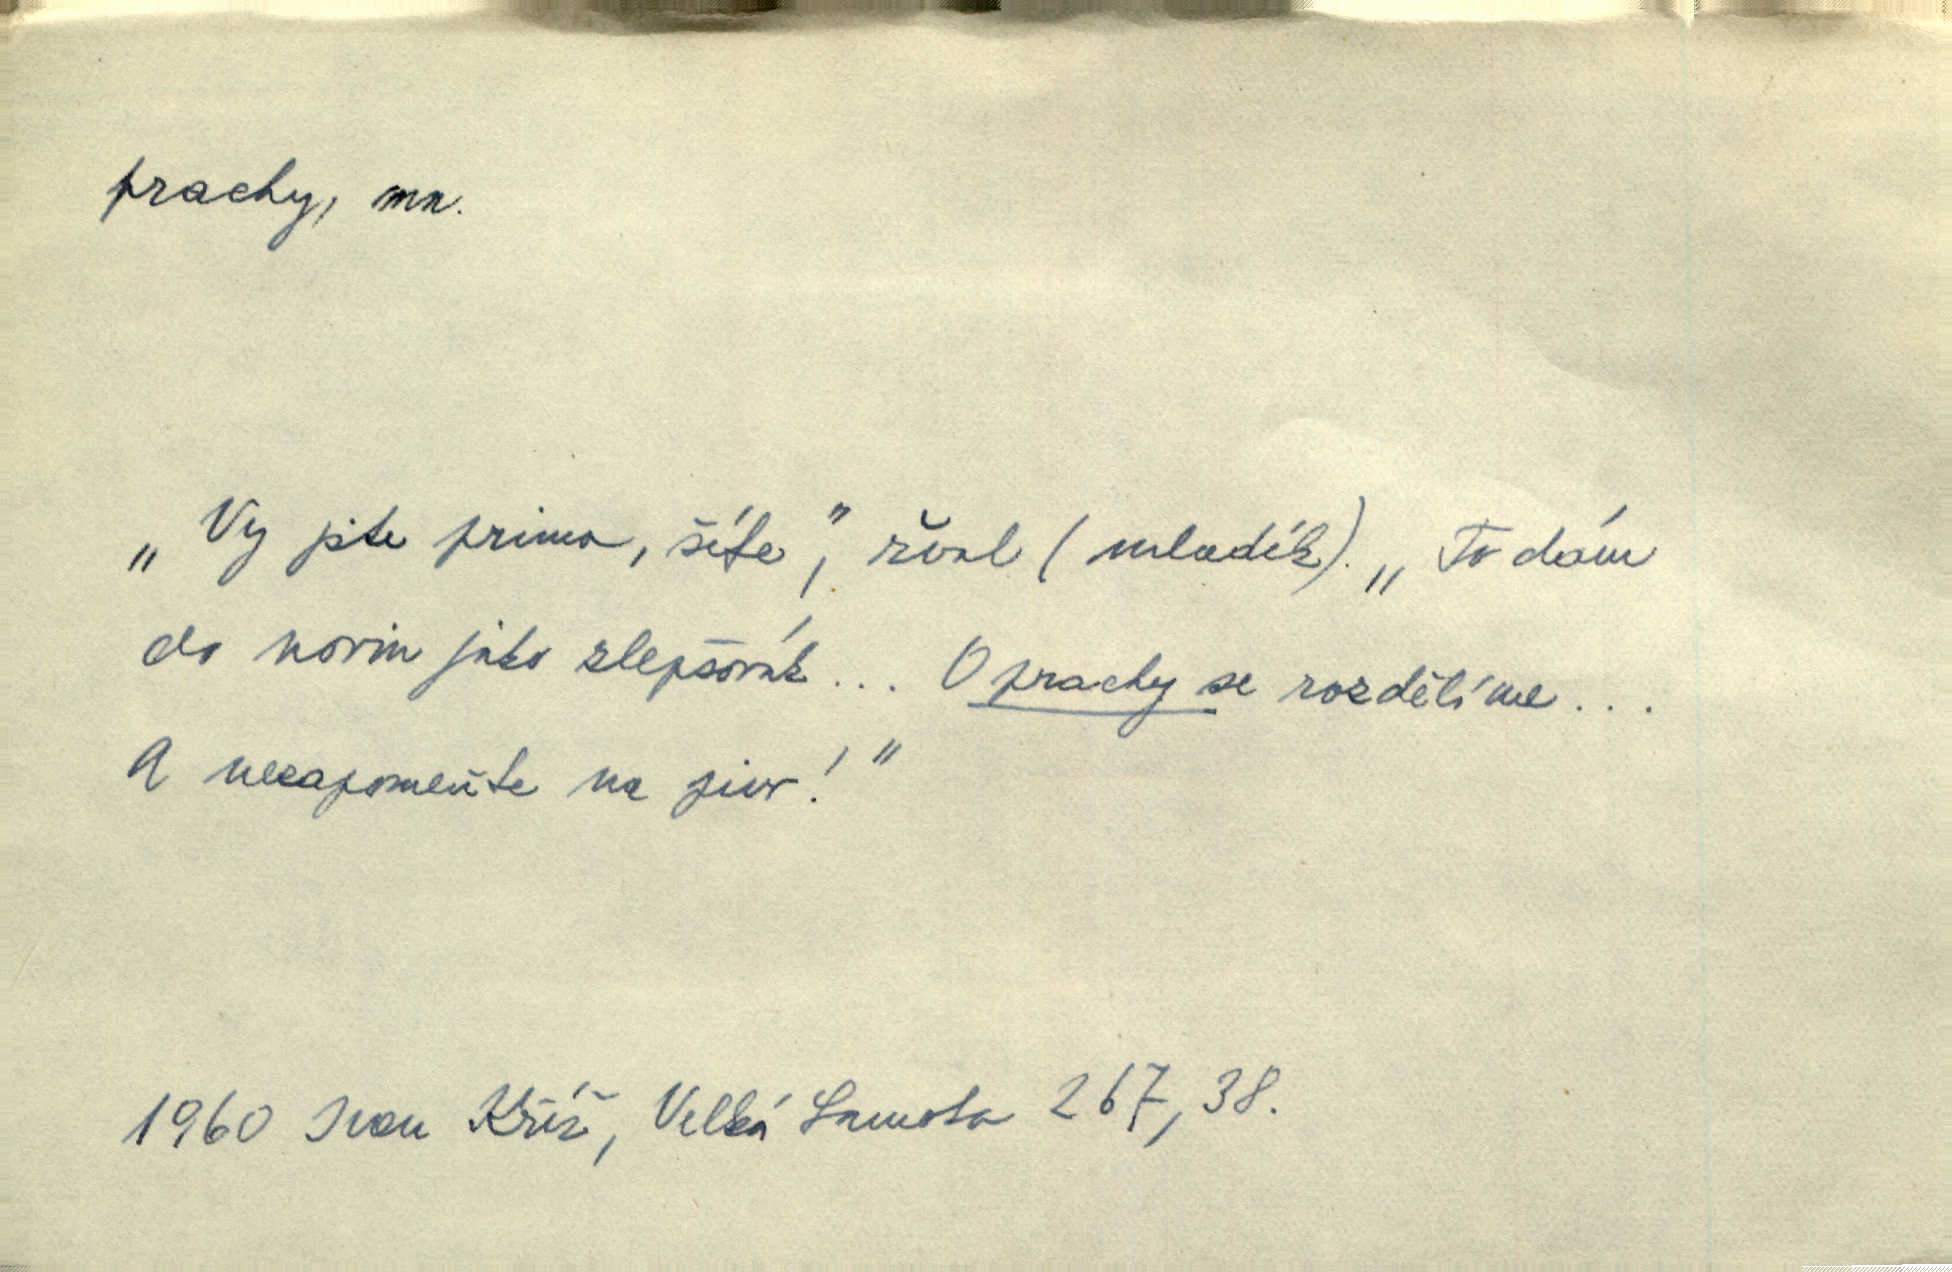 prachy, mn.
„Vy jste prima, šéfe“, řval (mladík). „To dám
do novin jako zlepšovák... O prachy se rozdělíme...
A nezapomeňte na pivo!“
1960 Ivan Kříž, Velká Samota 267, 38.